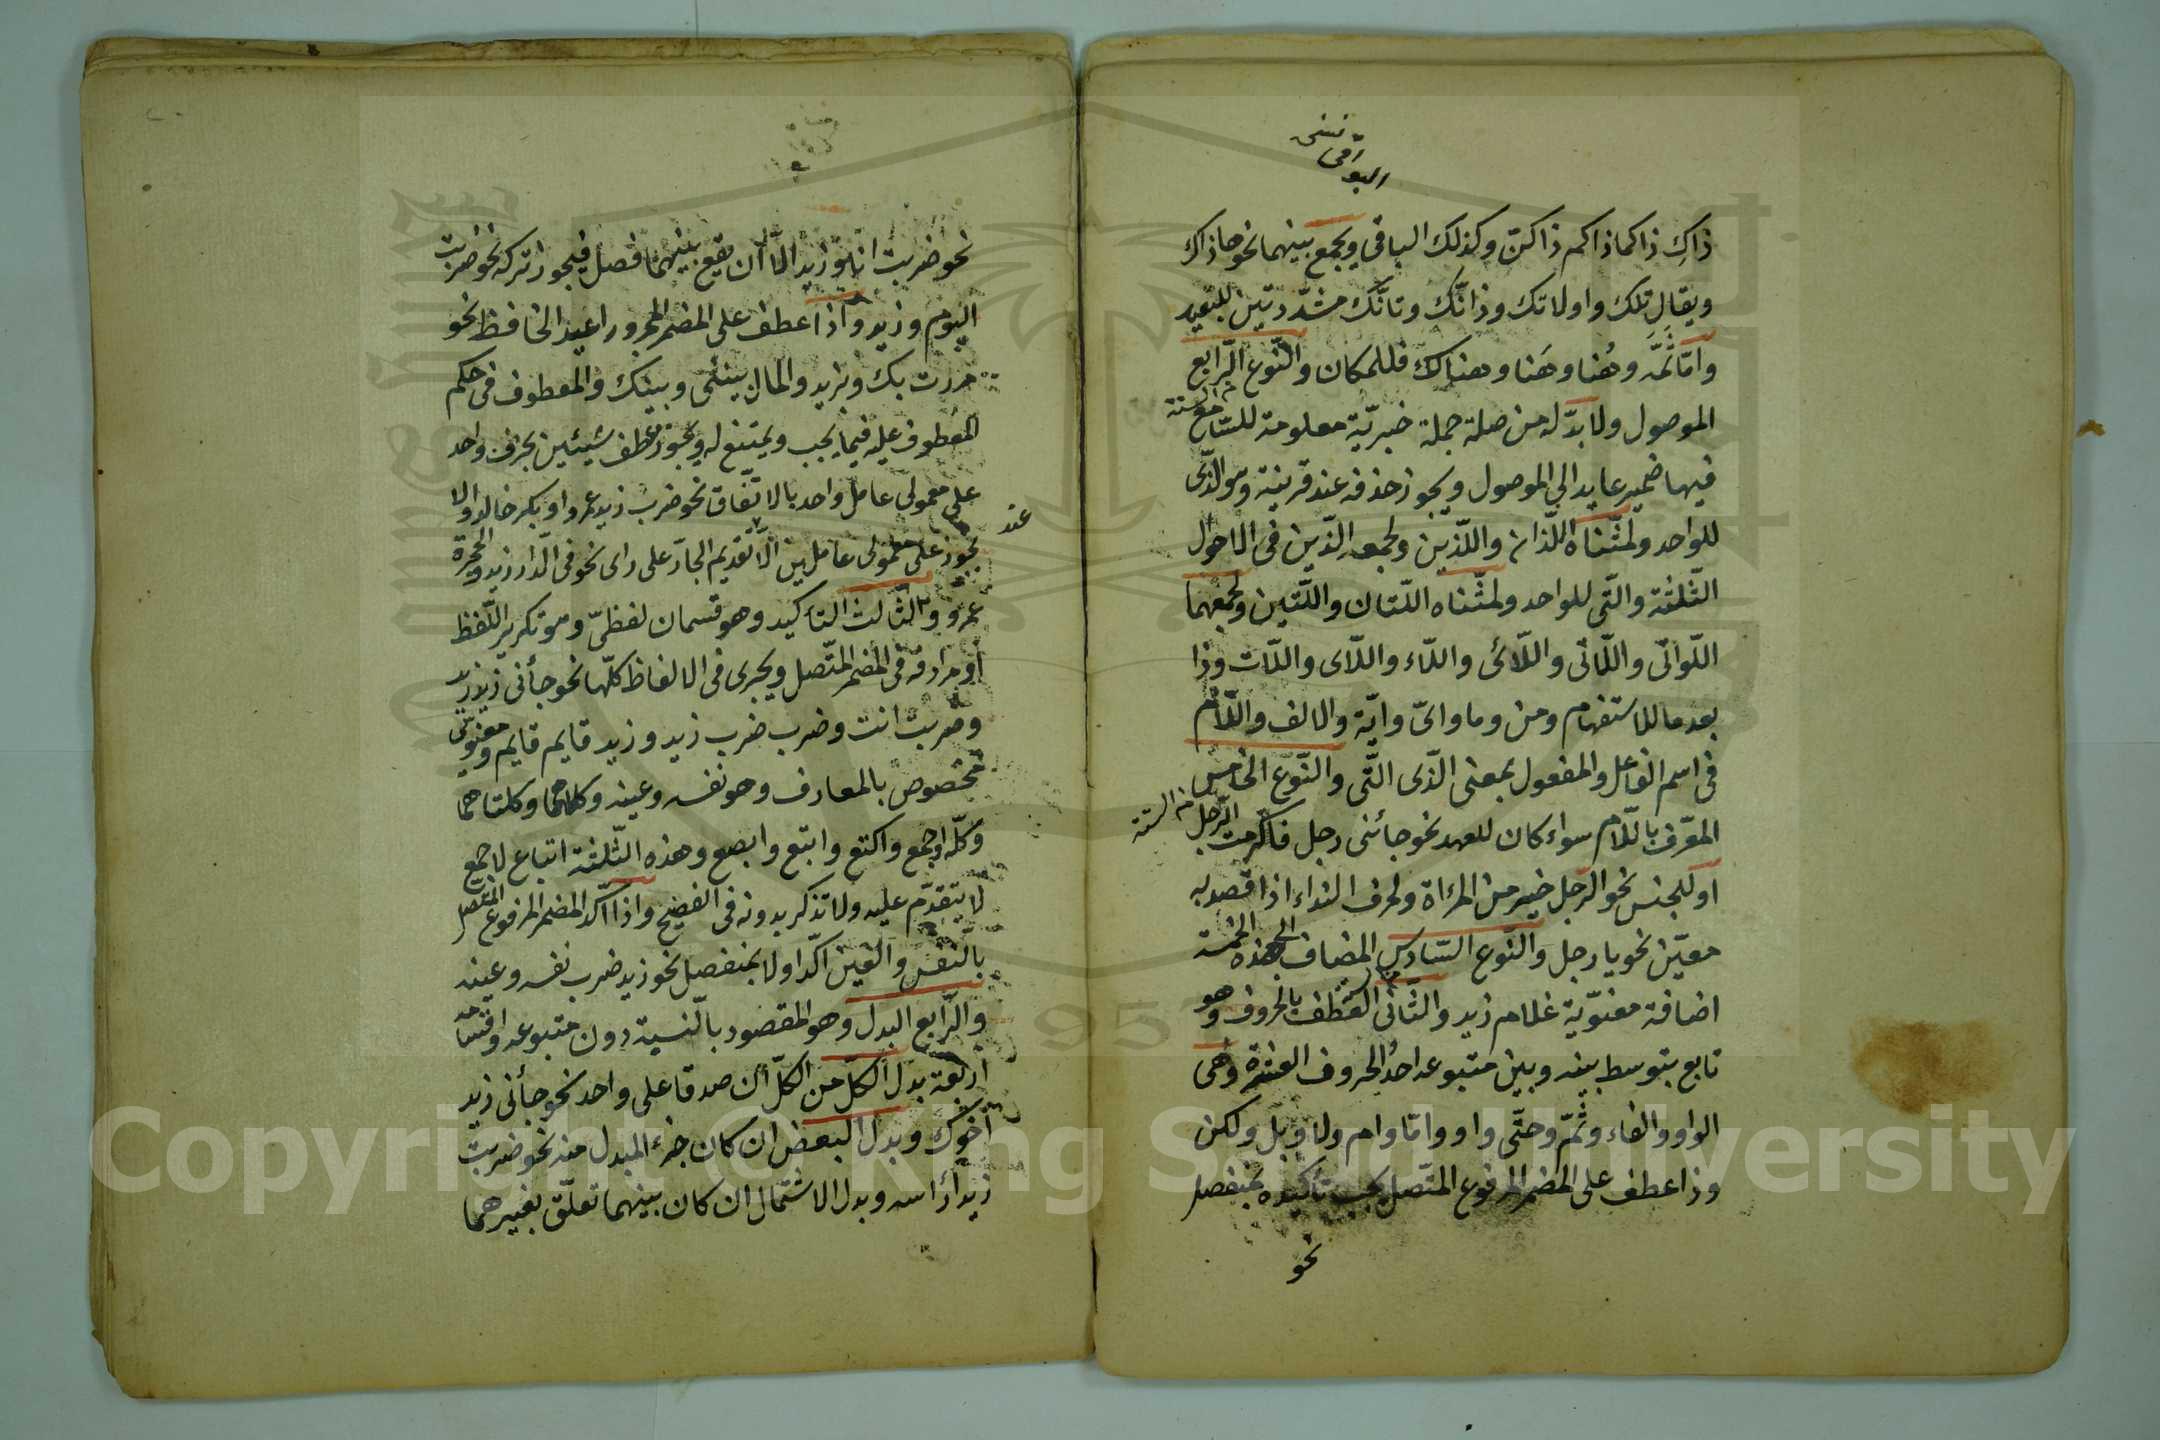 ذاكِ ذاكما ذاكم ذاكنّ وكذلك البواقي ويجمع بينهما نحو هاذاك
ويقال تلك واولاتك وذانّك وتانّك مشدّدتين للبعيد
وامّا ثَمَّه وهُنا وهَنا وهناك فللمكان والنّوع الرّابع
الموصول ولا بدّ له من صلة جملة خبريّة معلومة للسّامع
فيها ضمير عايد الي الموصول ويجوز حذفه عند قرينة وهو الّذى
للواحد ولمثّناه اللّذان واللّذين ولجمعه الّذين فى الاحوال
الثّلثة والّتى للواحد ولمثّناه اللّتان واللّتين ولجمعهما
اللّواتى واللّاتى واللّائى واللّاء واللّاى واللّات وذا
بعد ما للاستفهام ومن وما واىّ وايّة والالف واللّام
فى اسم الفاعل والمفعول بمعنى الّذى الّتى والنّوع الخامس
من الستة
المعرّف باللّام سواء كان للعهد نحو جائنى رجل فاكرمت الرّجل
او للجنس نحو الرّجل خير من المراة ولحرف النداء اذا قصد به
معيّن نحو يا رجل والنّوع السّادس المضاف الى هذه الخمسة
اضافة معنويّة غلام زيد والثّانى العطف بالحروف وهو
تابع يتوسط بينه وبين متبوعه احد الحروف العشرة وهى
الواو والفاء وثُمّ وحتّى واو وامّا وام ولا وبل ولكن
وذا عطف على المضمر المرفوع المتّصل يجب تأكيده بمنفصل
نحو
نحو ضربت انا وزيد الّا أن يقع بينهما فصل فيجوز تركه نحو ضربت
اليوم وزيد واذا عطف على المضمر المجرور اعيد الخافظ نحو
مررت بك وبزيد والمال بينى وبينك والمعطوف فى حكم
المعطوف عليه فيما يجب ويمتنع له ويجوز عطف شيئين بحرف واحد
على معمولى عامل واحد بالاتّفاق نحو ضرب زيد عمروا وبكر خالدا ولا
عند
يجوز على معمولى عاملين الّا تقديم الجارّ على راى نحو فى الدّار زيد والحجرة
عمرو والثّالث التأكيد وهو قسمان لفظىّ وهو تكرير اللّفظ
او مرادفه فى المضمر المتّصل ويجرى فى الالفاظ كلّها نحو جأنى زيد زيد
وضربت انت وضرب ضرب زيد وزيد قايم قايم ومعنوىّ
مخصوص بالمعارف وهو نفسه وعينه وكلاهما وكلتاهما
وكلّه واجمع واكتع وابتع وابصع وهذه الثّلثة اتباع لاجمع
لا يتقدّم عليه ولا تذكر بدونه فى الفصيح واذا اكّد المضمر المرفوع المتّصل
بالنّفس والعين اكّد اولا بمنفصل نحو زيد ضرب نفسه وعينه
والرّابع البدل وهو المقصود بالنّسبة دون متبوعه واقسامه
اربعة بدل الكلّ من الكلّ ان صدقا على واحد نحو جأنى زيد
اخوك وبدل البعض ان كان جزء المبدل منه نحو ضربت
زيدا رأسه وبدل الاشتمال ان كان بينهما تعلّق بغيرهما
Copyright © King Saud University